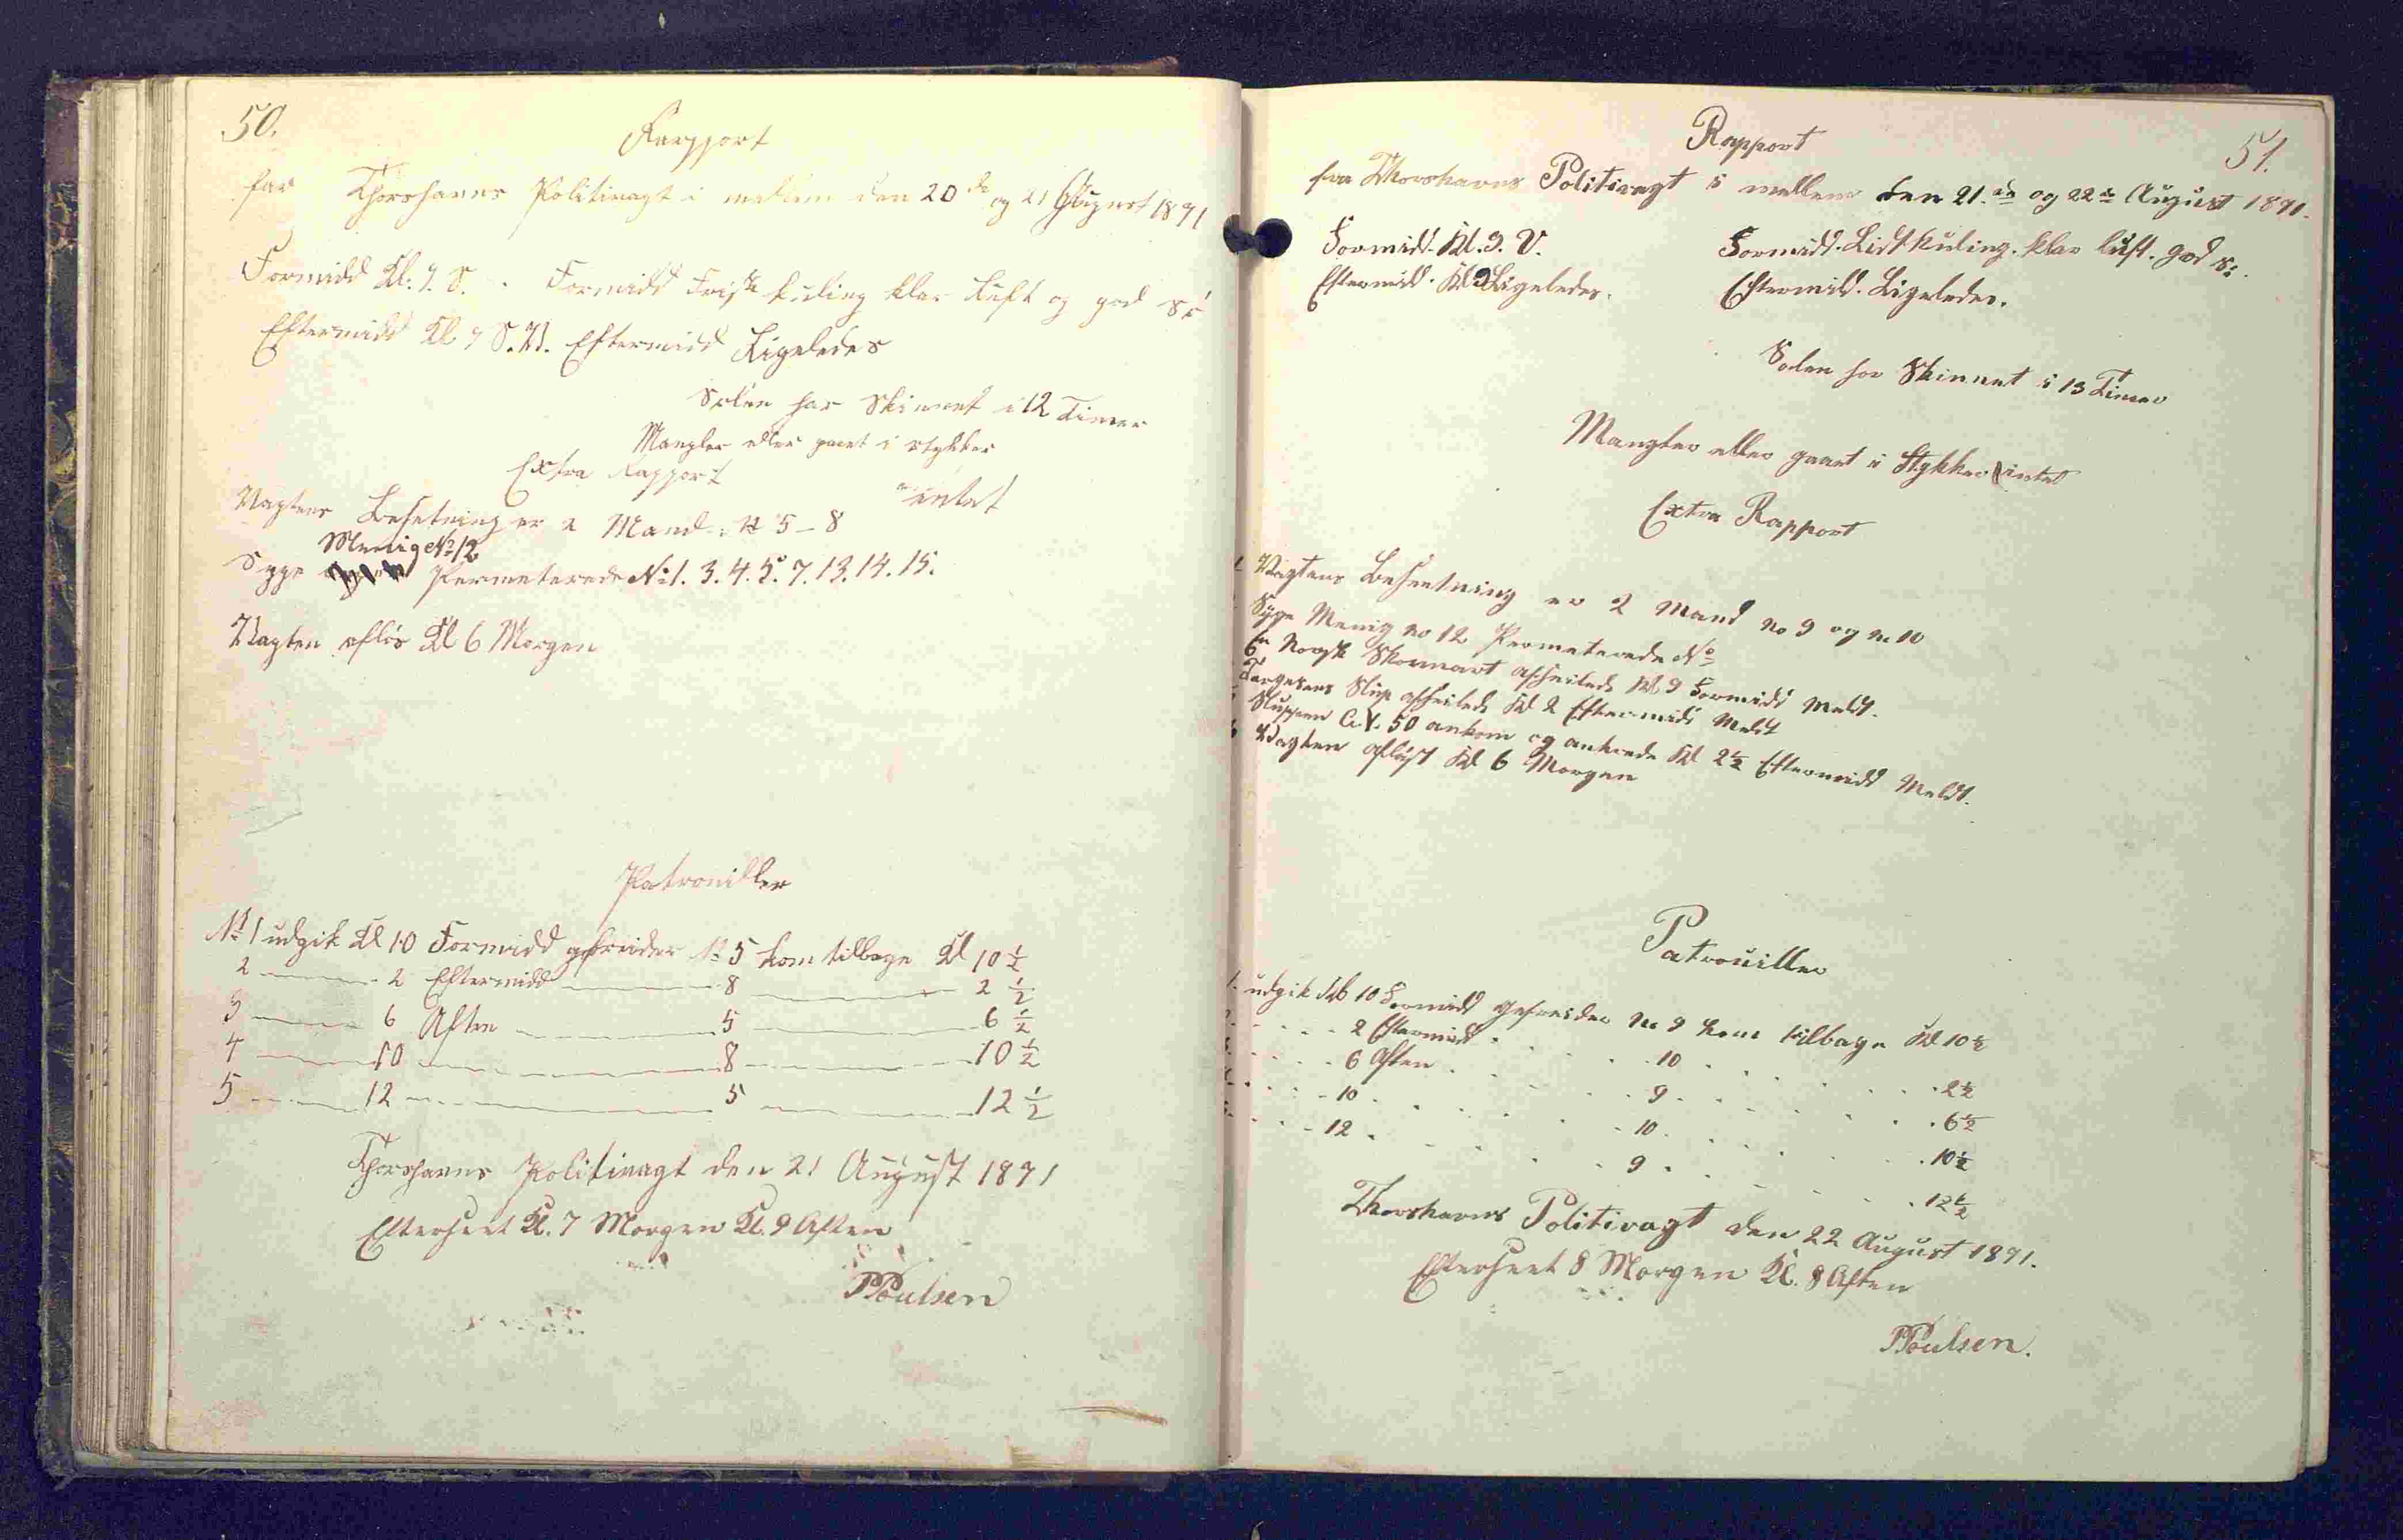 50.
Rapport
fra Thorshavns Politivagt i mellem den 20de og 21 August 1891
Formidd Kl. 9. S. Formidd Frisk kuling klar Luft og god Sö
Eftermidd Kl 9 S.V. Eftermidd Ligeledes
Solen har Skinnet i 12 Timer
Mangler eller gaaet i stykker
intet
Extra Rapport
Vagtens Besetning er 2 Mand № 5 - 8
Menig № 12
Syge Permeterede № 1. 3. 4. 5. 7. 13. 14. 15.
Vagten aflös Kl 6 Morgen
Patrouiller
№ 1 udgik Kl 10 Formidd gefreider № 5 kom tilbage Kl 10 ½
2 2 Eftermidd 8 2 ½
3 6 Aften 5 6 ½
4 10 8 10 ½
5 12 5 12 ½
Thorshavns Politivagt den 21 August 1891
Efterseet Kl. 7 Morgen Kl. 9 Aften
PPoulsen
51.
Rapport
fra Thorshavns Politivagt i mellem den 21.de og 22de August 1891.
Formidd. Kl. 9. V. Formidd. Lidt Kuling. klar luft. god Sö.
Eftermidd. Kl 9 Ligeledes. Eftermidd. Ligeledes.
Solen har Skinnet i 13 Timer
Mangler eller gaaet i Stykker intet
Extra Rapport
1 Vagtens Besætning er 2 Mand no 9 og no 10
Syge Menig no 12 Permeterede №
En Norsk Skonnart afseilede Kl 9 Formidd Meldt.
Slup afseilede Kl 2 Eftermidd Meldt
Sluppen 50 ankom og ankrede Kl 2½ Eftermidd Meldt.
6 Vagten aflöst Kl 6 Morgen
Patrouiller
1. udgik Kl 10 Formidd gefreider no 9 kom tilbage Kl 10½
2 Eftermidd 10 2½
6 Aften 9 6½
10 10 10½
12 9 12½
Thorshavns Politivagt den 22 August 1891.
Efterseet 8 Morgen Kl. 8 Aften
PPoulsen.